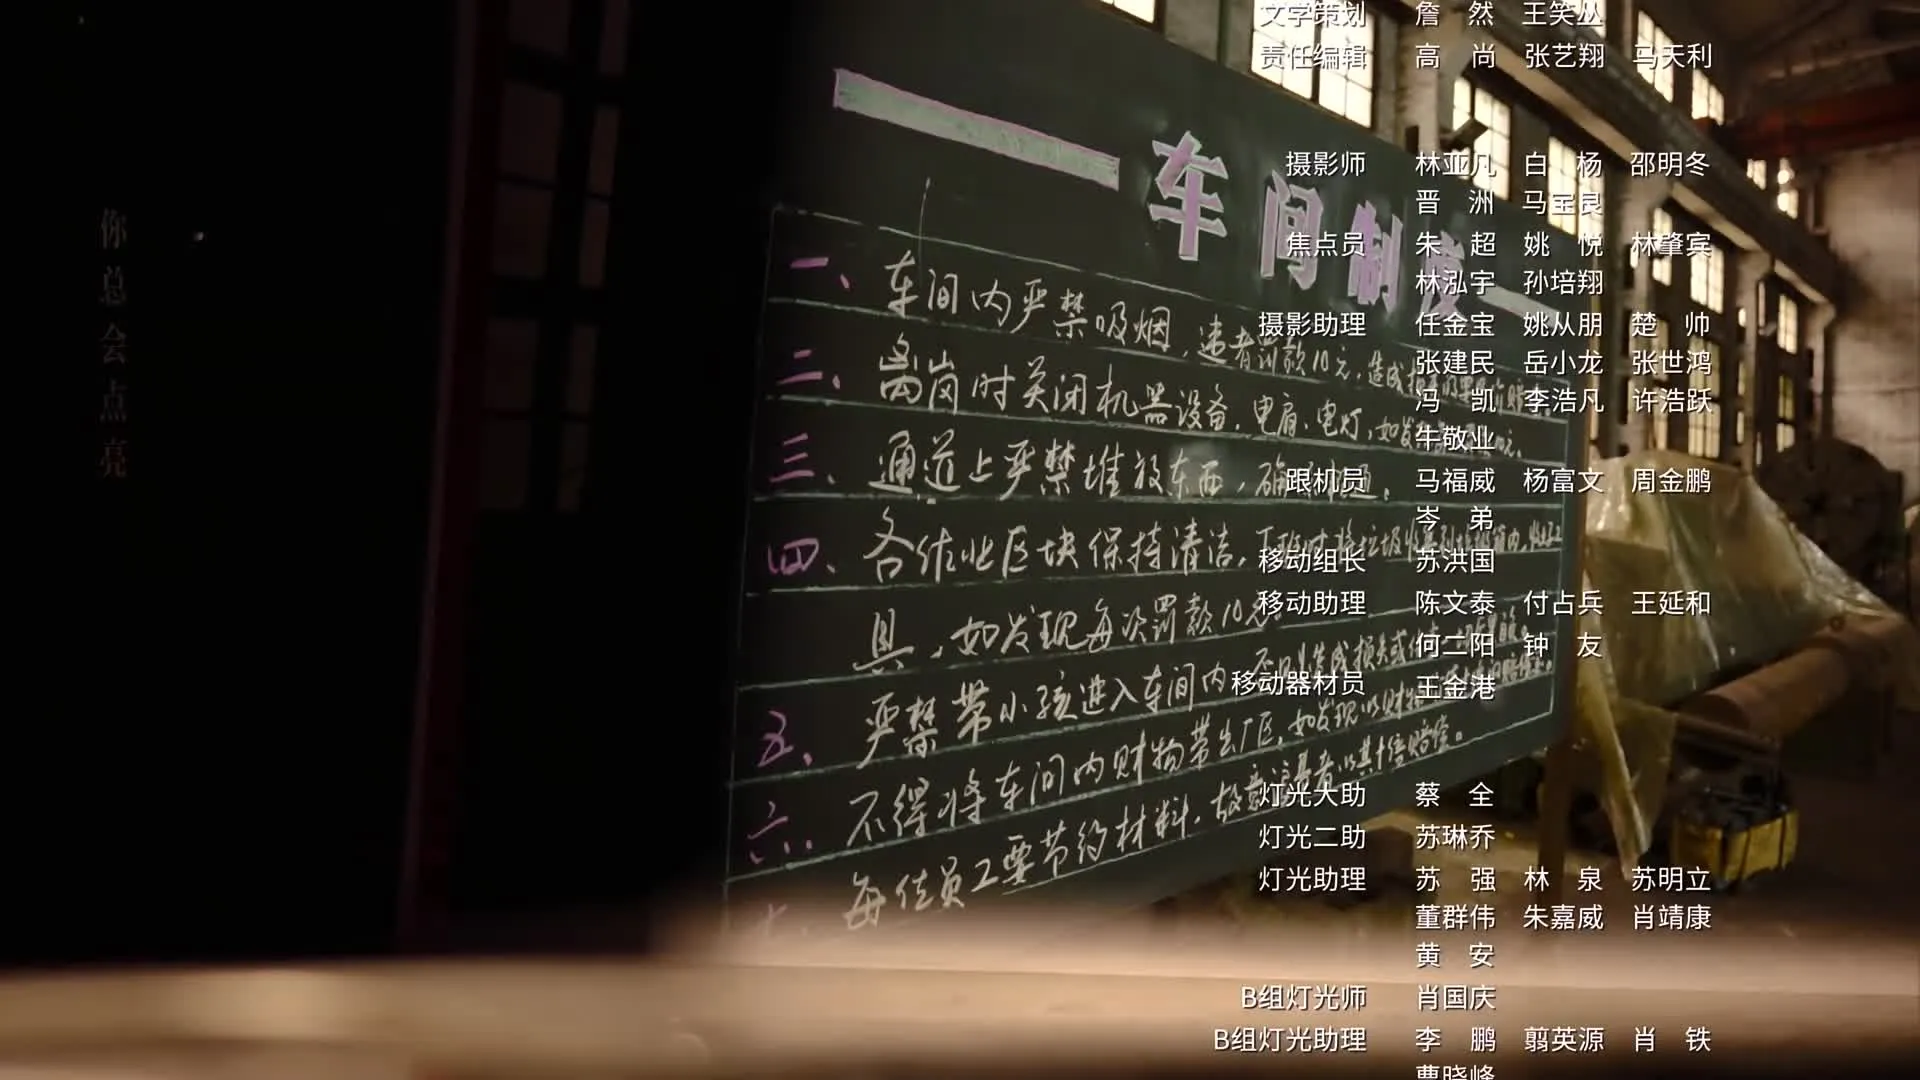 你总会点亮
车间制度
一、车间内严禁吸烟，违者罚款10元，造成
二、离岗时关闭机器设备，电扇、电灯，如发
三、通道上严禁堆放东西，确
四、各作业区块保持清洁，下班时将垃圾
具，如发现每次罚款10元
五、严禁带小孩进入车间内，否则造成损失或
六、不得将车间内财物带出厂区，如发现以财物
每位员工要节约材料，故意浪费者以其十倍赔偿。
文学策划 詹 然 王笑丛
责任编辑 高 尚 张艺翔 马天利
摄影师 林亚凡 白 杨 邵明冬
晋 洲 马宝良
焦点员 朱 超 姚 悦 林肇宾
林泓宇 孙培翔
摄影助理 任金宝 姚从朋 楚 帅
张建民 岳小龙 张世鸿
冯 凯 李浩凡 许浩跃
牛敬业
跟机员 马福威 杨富文 周金鹏
岑 弟
移动组长 苏洪国
移动助理 陈文泰 付占兵 王延和
何二阳 钟 友
移动器材员 王金港
灯光大助 蔡 全
灯光二助 苏琳乔
灯光助理 苏 强 林 泉 苏明立
董群伟 朱嘉威 肖靖康
黄 安
B组灯光师 肖国庆
B组灯光助理 李 鹏 翦英源 肖 铁
曹晓峰